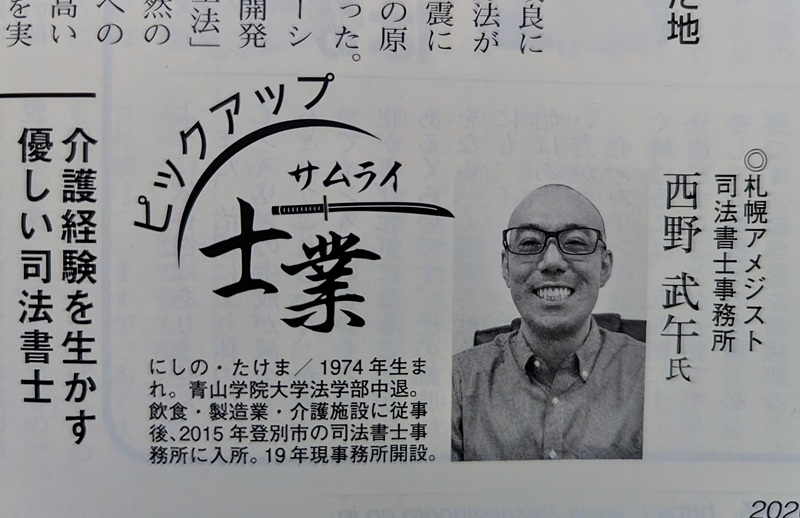 た地
良に
法が
震に
の原
った。
ーシ
開発
生法」
然の
への
高い
を実
◎札幌アメジスト
司法書士事務所
西野 武午氏
ピックアップ
サムライ
士業
にしの・たけま／1974年生ま
れ。青山学院大学法学部中退。
飲食・製造業・介護施設に従事
後、2015年登別市の司法書士事
務所に入所。19年現事務所開設。
介護経験を生かす
優しい司法書士